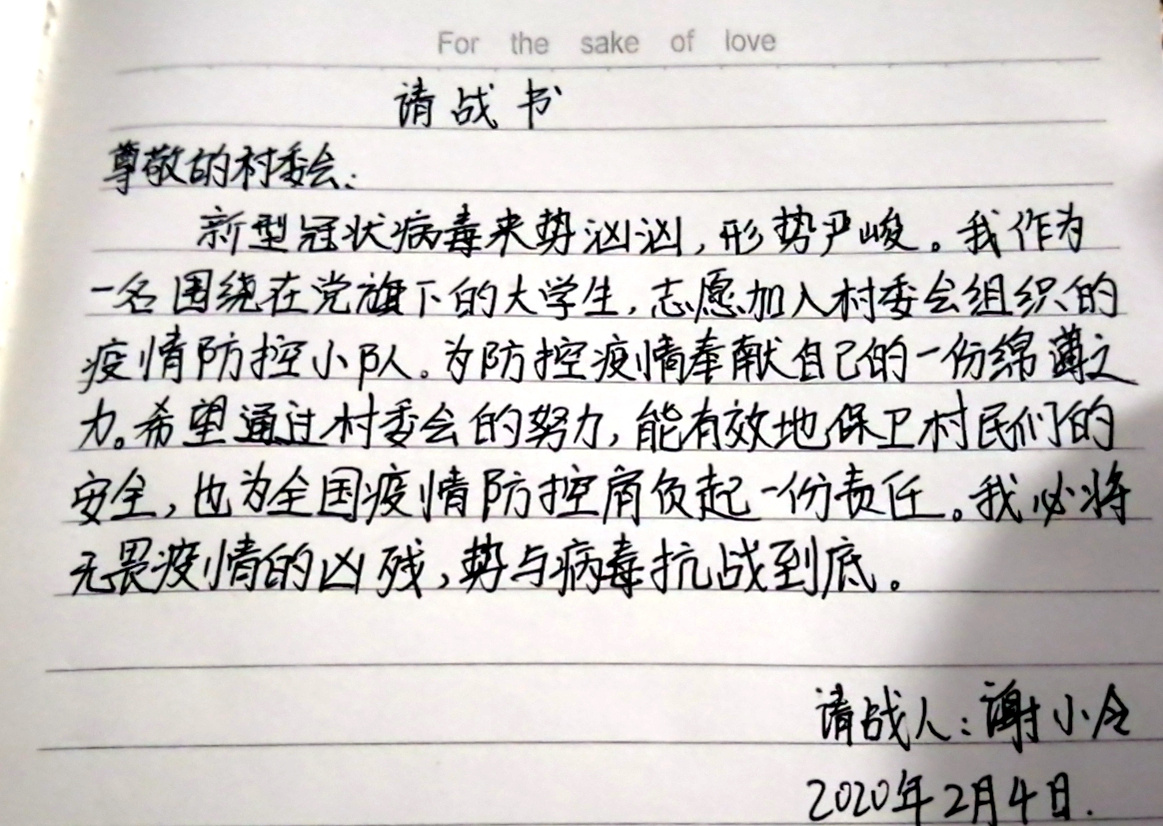 For the sake of love
请战书
尊敬的村委会:
新型冠状病毒来势汹汹,形势严峻。我作为
一名围绕在党旗下的大学生,志愿加入村委会组织的
疫情防控小队。为防控疫情奉献自己的一份绵薄之
力。希望通过村委会的努力,能有效地保卫村民们的
安全,也为全国疫情防控肩负起一份责任。我必将
无畏疫情的凶残,势与病毒抗战到底。
请战人:谢小令
2020年2月4日.